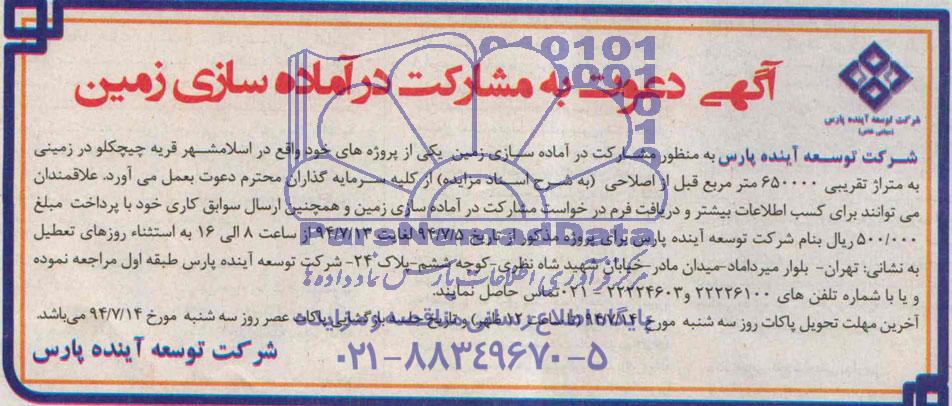 آگهی دعوت به مشارکت در آماده سازی زمین
شرکت توسعه آینده پارس
(سهامی خاص)
شرکت توسعه آینده پارس به منظور مشارکت در آماده سازی زمین یکی از پروژه های خود واقع در اسلامشهر قریه چیچکلو در زمینی
به متراژ تقریبی ۶۵۰۰۰۰ متر مربع قبل از اصلاحی (به شرح اسناد مزایده) از کلیه سرمایه گذاران محترم دعوت بعمل می آورد. علاقمندان
می توانند برای کسب اطلاعات بیشتر و دریافت فرم در خواست مشارکت در آماده سازی زمین و همچنین ارسال سوابق کاری خود با پرداخت مبلغ
۵۰۰/۰۰۰ ریال بنام شرکت توسعه آینده پارس برای پروژه مذکور از تاریخ ۹۴/۷/۵ لغایت ۹۴/۷/۱۳ از ساعت ۸ الی ۱۶ به استثناء روزهای تعطیل
به نشانی: تهران- بلوار میرداماد-میدان مادر-خیابان شهید شاه نظری-کوچه ششم-پلاک ۲۴- شرکت توسعه آینده پارس طبقه اول مراجعه نموده
و یا با شماره تلفن های ۲۲۲۲۶۱۰۰ و ۲۲۲۲۴۶۰۳ - ۰۲۱ تماس حاصل نمایند.
آخرین مهلت تحویل پاکات روز سه شنبه مورخ ۹۴/۷/۱۴ (تا ساعت ۱۲ ظهر) و تاریخ جلسه بازگشایی پاکات عصر روز سه شنبه مورخ ۹۴/۷/۱۴ می‌باشد.
شرکت توسعه آینده پارس
010101
ParsNamadData
مرکز فرآوری اطلاعات پارس نماد داده ها
پایگاه اطلاع رسانی مناقصه و مزایده
۰۲۱-۸۸۳۴۹۶۷۰-۵